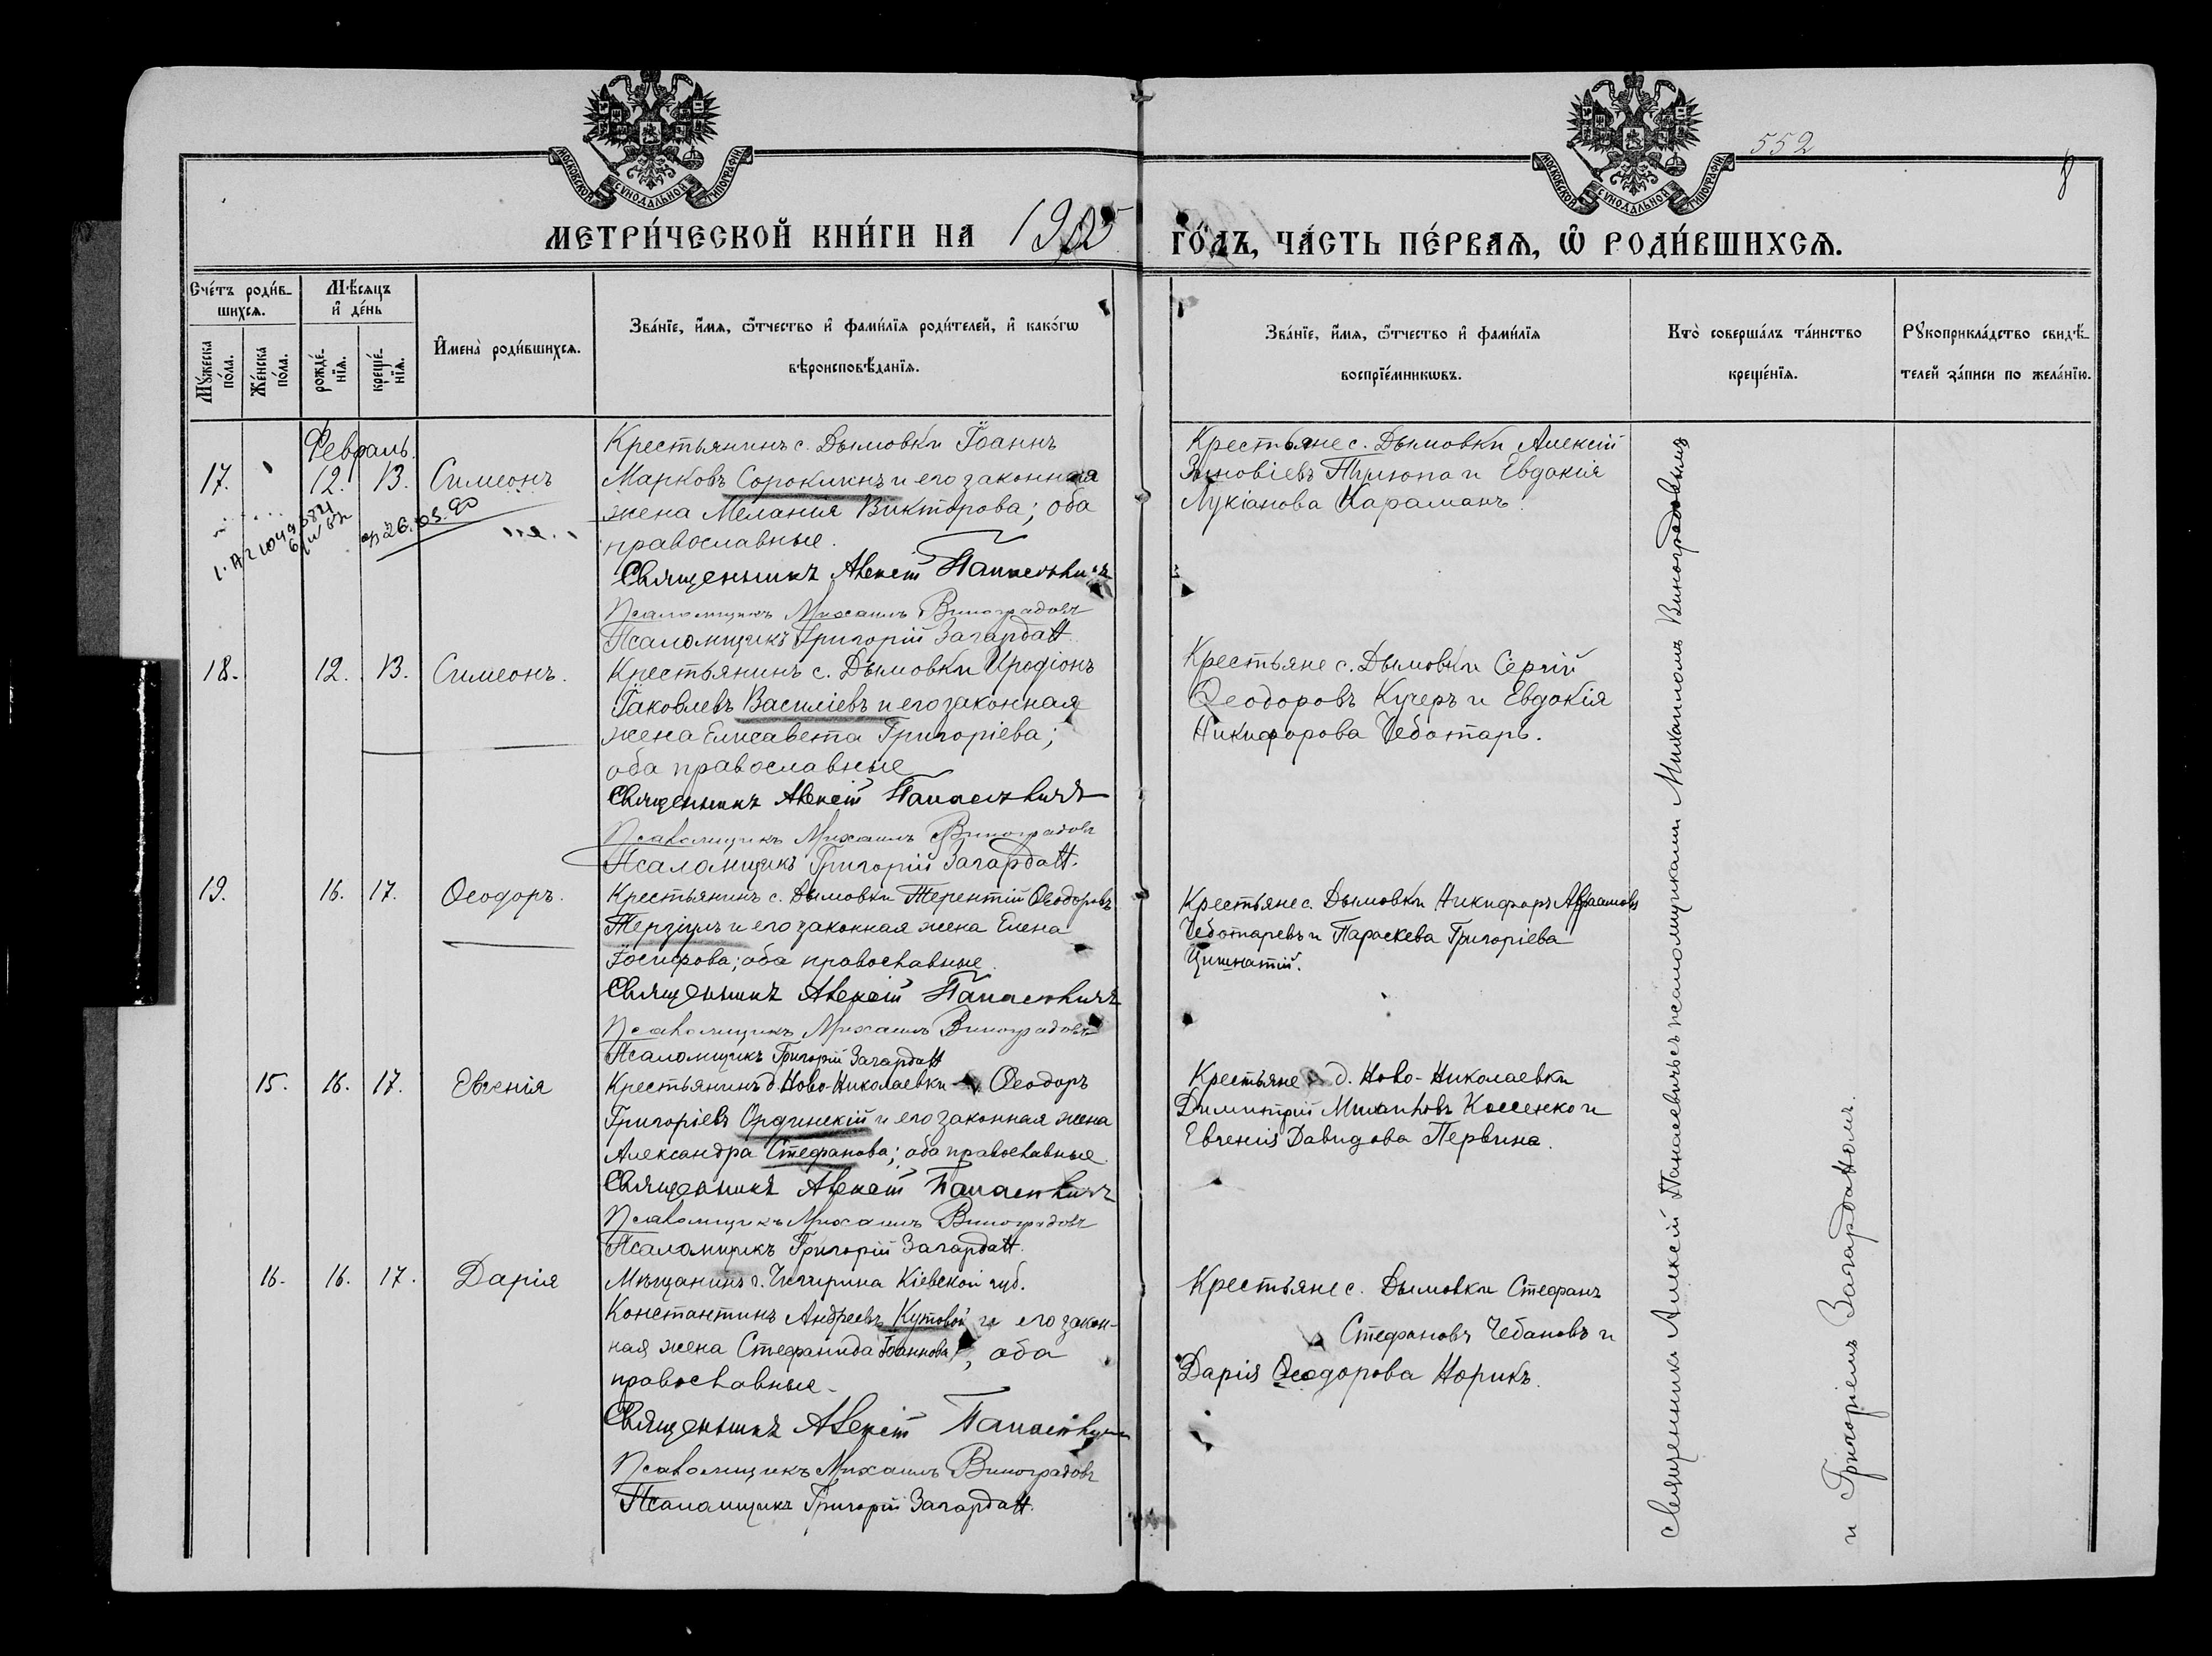 552
МОСКОВСКОЙ СѴНОДАЛЬНОЙ ТИПОГРАФІИ
МОСКОВСКОЙ СѴНОДАЛЬНОЙ ТИПОГРАФІИ
МЕТРИ́ЧЕСКОЙ КНИ́ГИ НА 1905 ГО́ДЪ, ЧА́СТЬ ПЕ́РВАѦ, Ѡ҆ РОДИ́ВШИХСѦ.
Сче́тъ роди́в-
шихсѧ.
Мꙋ́жеска
по́ла.
Же́нска
по́ла.
Мѣ́сѧцъ
и҆ де́нь
рожде́-
нїѧ.
креще́-
нїѧ.
И҆мена̀ роди́вшихсѧ.
Зва́нїе, и҆́мѧ, ѻ҆́тчество и҆ фами́лїѧ роди́телей, и҆ како́гѡ
вѣроисповѣ́данїѧ.
Зва́нїе, и҆́мѧ, ѻ҆́тчество и҆ фами́лїѧ
воспрїе́мникѡвъ.
Кто̀ соверша́лъ та́инство
креще́нїѧ.
Рꙋкоприкла́дство свидѣ́-
телей за́писи по жела́нїю.
Февраль.
17. 12. 13. Симеонъ
26.03.90
Крестьянинъ с. Дымовки Іоаннъ
Марковъ Сорокинъ и его законная
жена Меланія Викторова; оба
православные.
Священникъ Алексій Панасевичъ
Псаломщикъ Михаилъ Виноградовъ
Псаломщикъ Григорій Загардан
Крестьяне с. Дымовки Алексій
Зиновіевъ и Евдокія
Лукіанова Караманъ.
18. 12. 13. Симеонъ.
Крестьянинъ с. Дымовки Иродіонъ
Іаковлевъ Василіевъ и его законная
жена Елисавета Григоріева;
оба православные
Священникъ Алексій Панасевичъ
Псаломщикъ Михаилъ Виноградовъ
Псаломщикъ Григорій Загардан.
Крестьяне с. Дымовки Сергій
Ѳеодоровъ Кучеръ и Евдокія
Никифорова Чеботарь.
19. 16. 17. Ѳеодоръ.
Крестьянинъ с. Дымовки Терентій Ѳеодоровъ
Терзіулъ и его законная жена Елена
Іосифова; оба православные.
Священникъ Алексій Панасевичъ
Псаломщикъ Михаилъ Виноградовъ
Псаломщикъ Григорій Загардан
Крестьяне с. Дымовки Никифоръ Авраамовъ
Чеботаревъ и Параскева Григоріева
15. 16. 17. Евгенія
Крестьянинъ д. Ново-Николаевки Ѳеодоръ
Григоріевъ Ордынскій и его законная жена
Александра Стефанова; оба православные.
Священникъ Алексій Панасевичъ
Псаломщикъ Михаилъ Виноградовъ
Псаломщикъ Григорій Загардан.
Крестьяне д. Ново-Николаевки
Димитрій Михаиловъ Косенко и
Евгенія Давидова Первина.
16. 16. 17. Дарія
Мѣщанинъ г. Чигирина Кіевской губ.
Константинъ Андреевъ Кутовой и его закон-
ная жена Стефанида Іоаннова, оба
православные.
Священникъ Алексій Панасевичъ
Псаломщикъ Михаилъ Виноградовъ
Псаломщикъ Григорій Загардан.
Крестьяне с. Дымовки Стефанъ
Стефановъ Чебановъ и
Дарія Ѳеодорова Норикъ.
Священникъ Алексій Панасевичъ съ псаломщиками Михаиломъ Виноградовымъ
и Григоріемъ Загарданомъ.